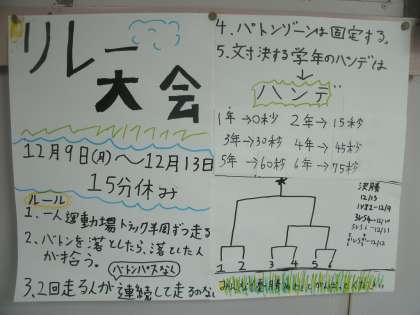 リレー
大会
12月9日(月)〜12月13日
15分休み
ルール
1.一人運動場トラック半周ずつ走る
2.バトンを落としたら、落とした人
が拾う。
バトンパスなし
3.2回走る人が連続して走るのなし
4.バトンゾーンは固定する。
5.対決する学年のハンデは
ハンデ
1年→0秒 2年→15秒
3年→30秒 4年→45秒
5年→60秒 6年→75秒
決勝
12/13
1 2 3 4 5 6